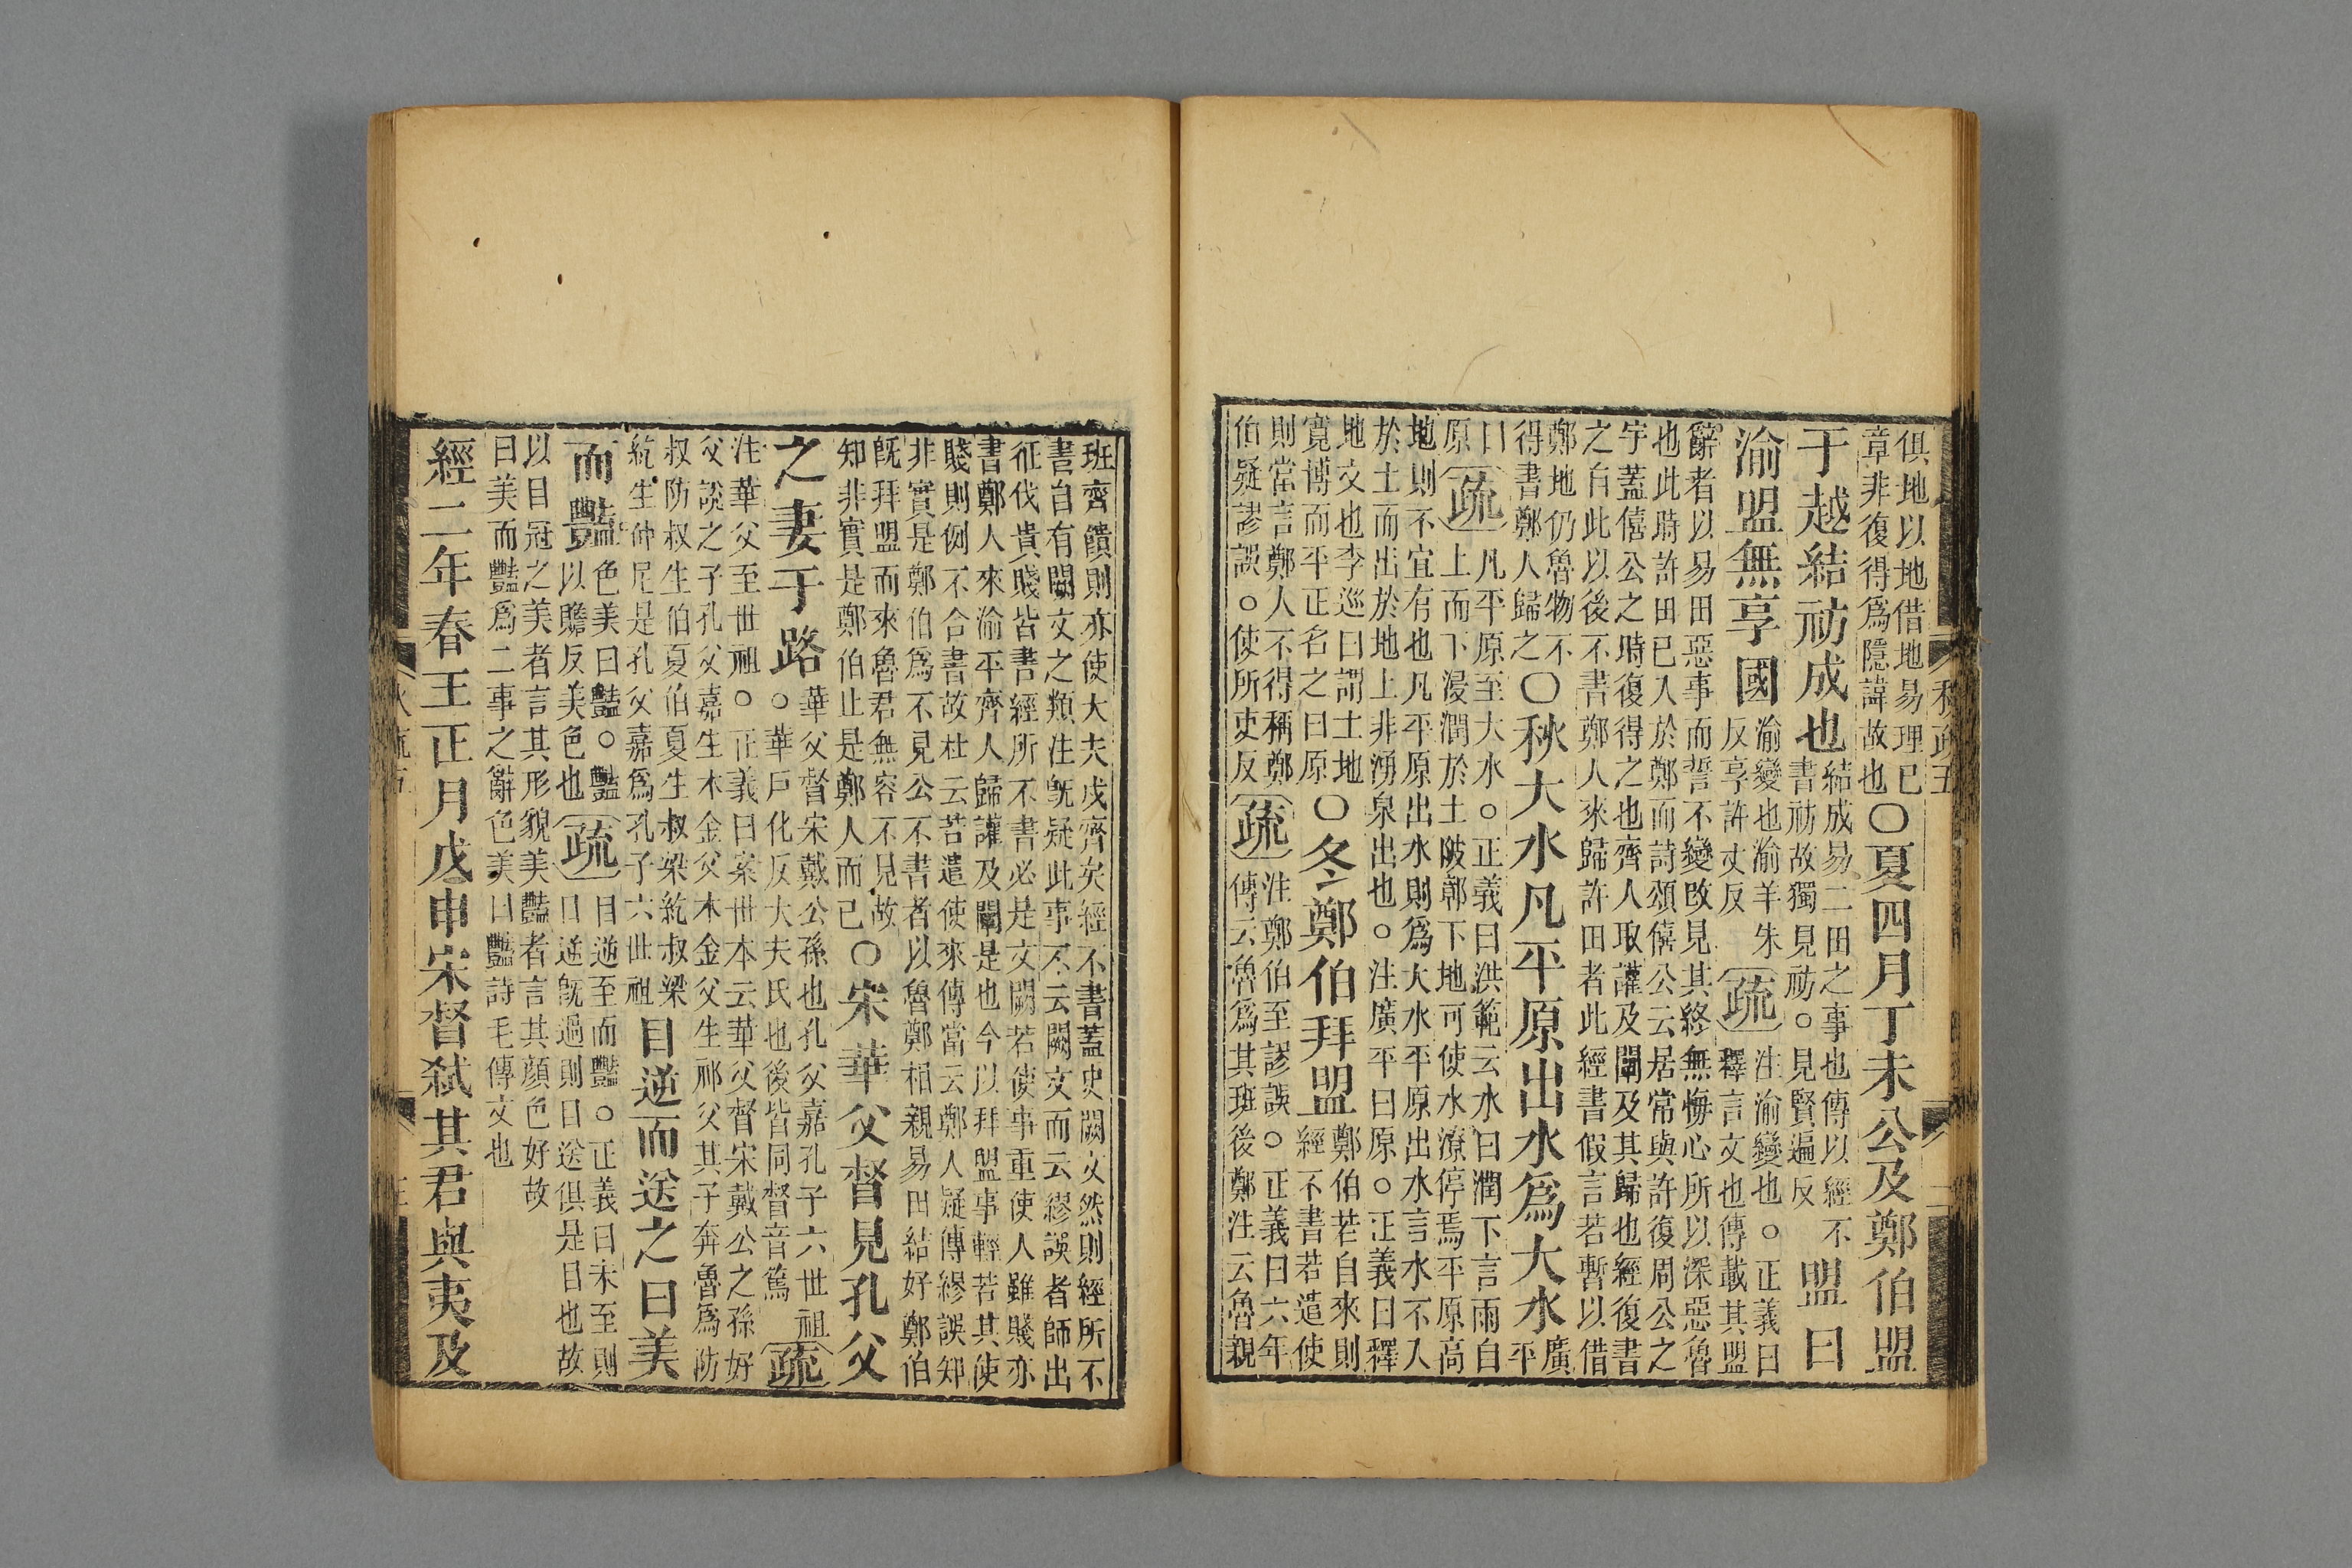 俱地以地借地易理已
章非復得爲隱諱故也
○夏四月丁未公及鄭伯盟
于越結祊成也
結成易二田之事也傳以經不
書祊故獨見祊○見賢遍反
盟曰
渝盟無享國
渝變也渝羊朱
反享許丈反
疏
注渝變也○正義曰
釋言文也傳載其盟
辭者以易田惡事而誓不變改見其終無悔心所以深惡魯
也此時許田已入於鄭而詩頌僖公云居常與許復周公之
宇蓋僖公之時復得之也齊人取讙及闡及其歸也經復書
之自此以後不書鄭人來歸許田者此經書假言若暫以借
鄭地仍魯物不得稱鄭
得書鄭人歸之
○秋大水凡平原出水爲大水
廣
平
曰
原
疏
凡平原至大水○正義曰洪範云水曰潤下言雨自
上而下浸潤於土陂鄣下地可使水潦停焉平原高
地則不宜有也凡平原出水則爲大水平原出水言水不入
於土而出於地上非湧泉出也○注廣平曰原○正義曰釋
地文也李巡曰謂土地
寬博而平正名之曰原
○冬鄭伯拜盟
鄭伯若自來則
經不書若遣使
則當言鄭人不得稱鄭
伯疑謬誤○使所吏反
疏
注鄭伯至謬誤○正義曰六年
傳云魯爲其班後鄭注云魯親
班齊饋則亦使大夫戍齊矣經不書蓋史闕文然則經所不
書自有闕文之類注旣疑此事不云闕文而云繆誤者師出
征伐貴賤皆書經所不書必是文闕若使事重使人雖賤亦
書鄭人來渝平齊人歸讙及闡是也今以拜盟事輕若其使
賤則例不合書故杜云若遣使來傳當云鄭人疑傳繆誤知
非實是鄭伯爲不見公不書者以魯鄭相親易田結好鄭伯
旣拜盟而來魯君無容不見故
知非實是鄭伯止是鄭人而已
○宋華父督見孔父
之妻于路
華父督宋戴公孫也孔父嘉孔子六世祖
○華戶化反大夫氏也後皆同督音篤
疏
注華父至世祖○正義曰案世本云華父督宋戴公之孫好
父說之子孔父嘉生木金父木金父生祁父其子奔魯爲防
叔防叔生伯夏伯夏生叔梁紇叔梁
紇生仲尼是孔父嘉爲孔子六世祖
目逆而送之曰美
而豔
色美曰豔○豔
以贍反美色也
疏
目逆至而豔○正義曰未至則
目逆旣過則目送俱是目也故
以目冠之美者言其形貌美豔者言其顏色好故
曰美而豔爲二事之辭色美曰豔詩毛傳文也
經二年春王正月戊申宋督弑其君與夷及